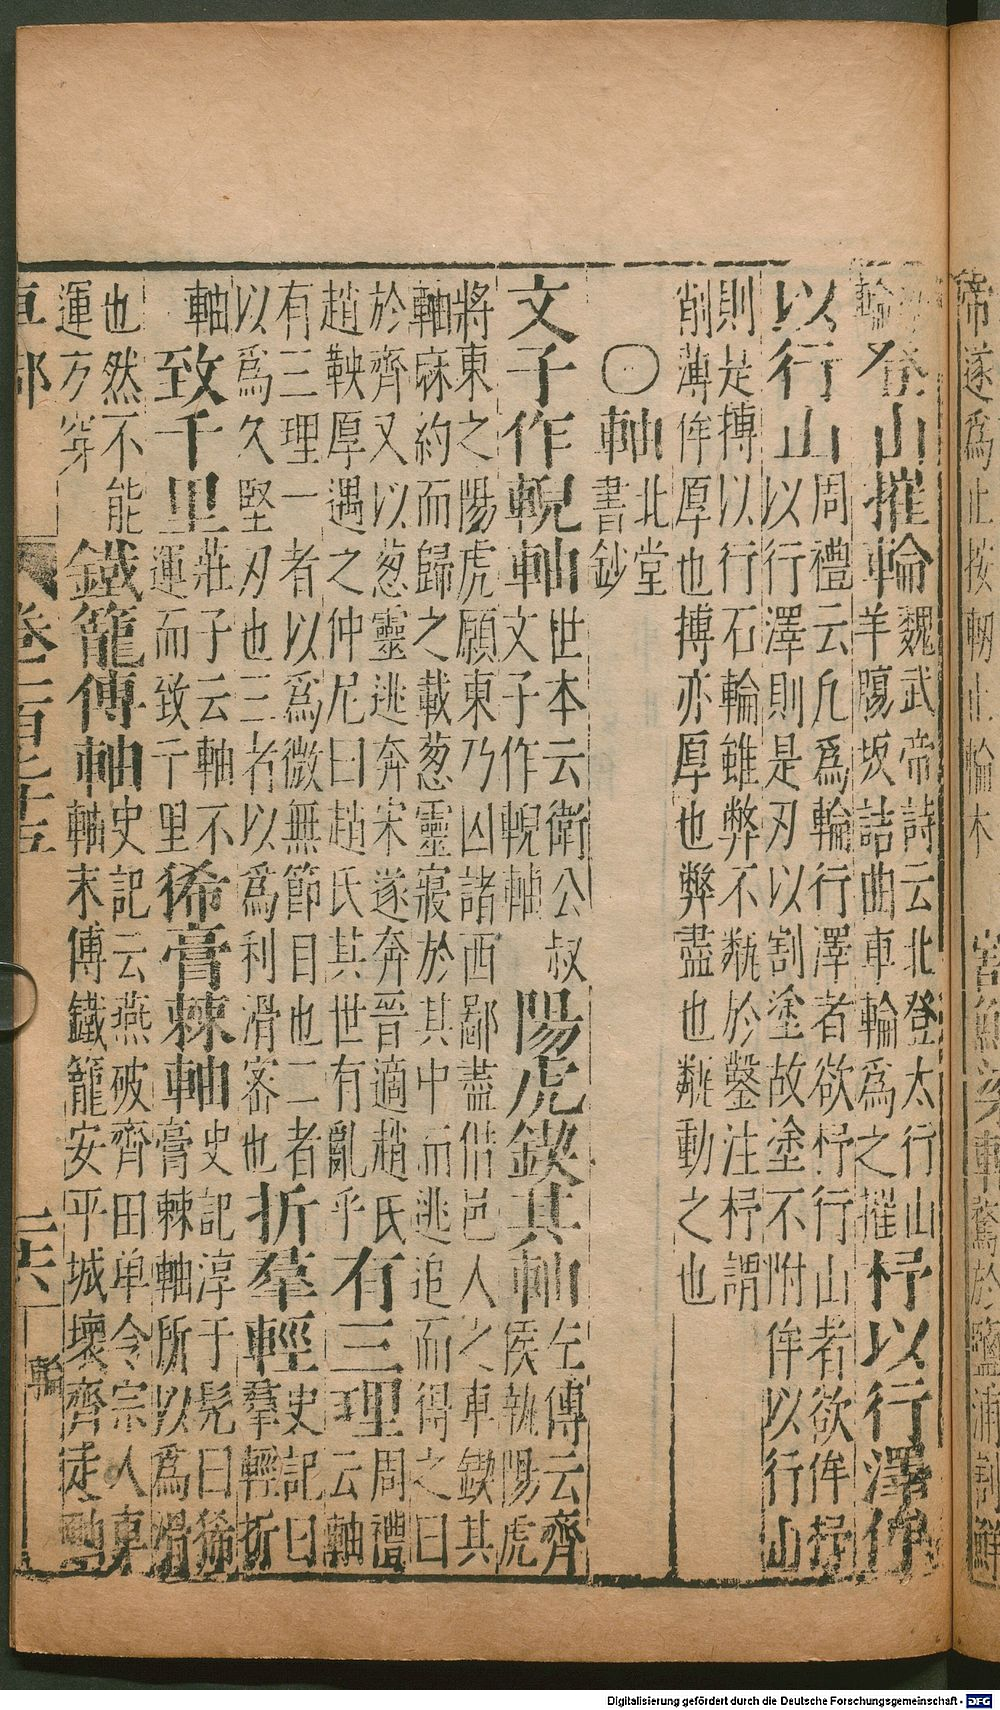 帝遂爲止按軔止輪木
輪
登山摧輪
魏武帝詩云北登太行山
羊腸坂詰曲車輪爲之摧
杼以行澤侔
以行山
周禮云凡爲輪行澤者欲杼行山者欲侔杼
以行澤則是刃以割塗故塗不附侔以行山
則是搏以行石輪雖弊不甐於鑿注杼謂
削薄侔厚也搏亦厚也弊盡也甐動之也
○軸
北堂
書鈔
文子作輗軸
世本云衛公叔
文子作輗軸
陽虎鍥其軸
左傳云齊
侯執陽虎
將東之陽虎願東乃囚諸西鄙盡借邑人之車鍥其
軸麻約而歸之載葱靈寢於其中而逃追而得之曰
於齊又以葱靈逃奔宋遂奔晉適趙氏
趙鞅厚遇之仲尼曰趙氏其世有亂乎
有三理
周禮
云軸
有三理一者以爲微無節目也二者
以爲久堅刃也三者以爲利滑密也
折羣輕
史記曰
羣輕折
軸
致千里
莊子云軸不
運而致千里
豨膏棘軸
史記淳于髡曰豨
膏棘軸所以爲滑
也然不能
運方穿
鐵籠傅軸
史記云燕破齊田单令宗人東
軸末傅鐵籠安平城壞齊走軸
車部
卷一百七十五
二六
輪
Digitalisierung gefördert durch die Deutsche Forschungsgemeinschaft - DFG